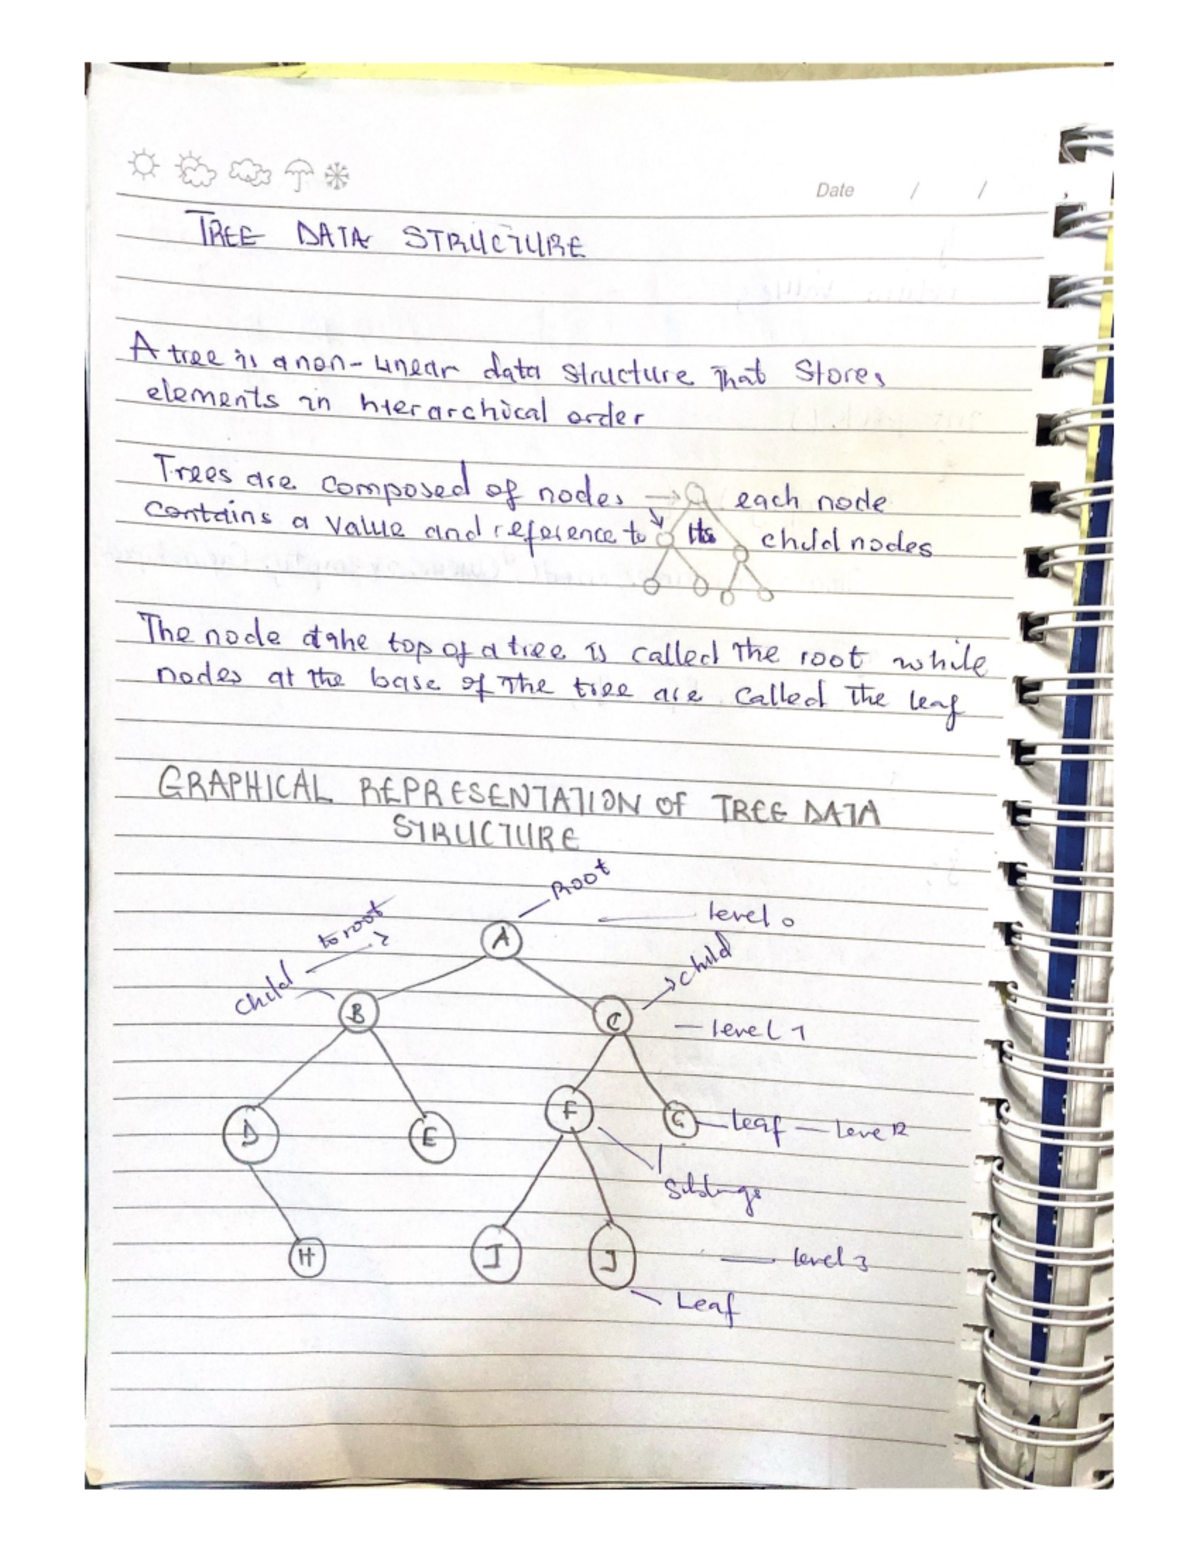 Date / /
TREE DATA STRUCTURE
A tree is a non-linear data structure that stores
elements in hierarchical order
Trees are composed of nodes → each node
contains a value and reference to its child nodes
The node at the top of a tree is called the root while
nodes at the base of the tree are called the leaf
GRAPHICAL REPRESENTATION OF TREE DATA
STRUCTURE
Root
level 0
to root
A
child
child
B
C
level 1
D
E
F
G
Leaf — level 2
siblings
H
I
J
level 3
Leaf